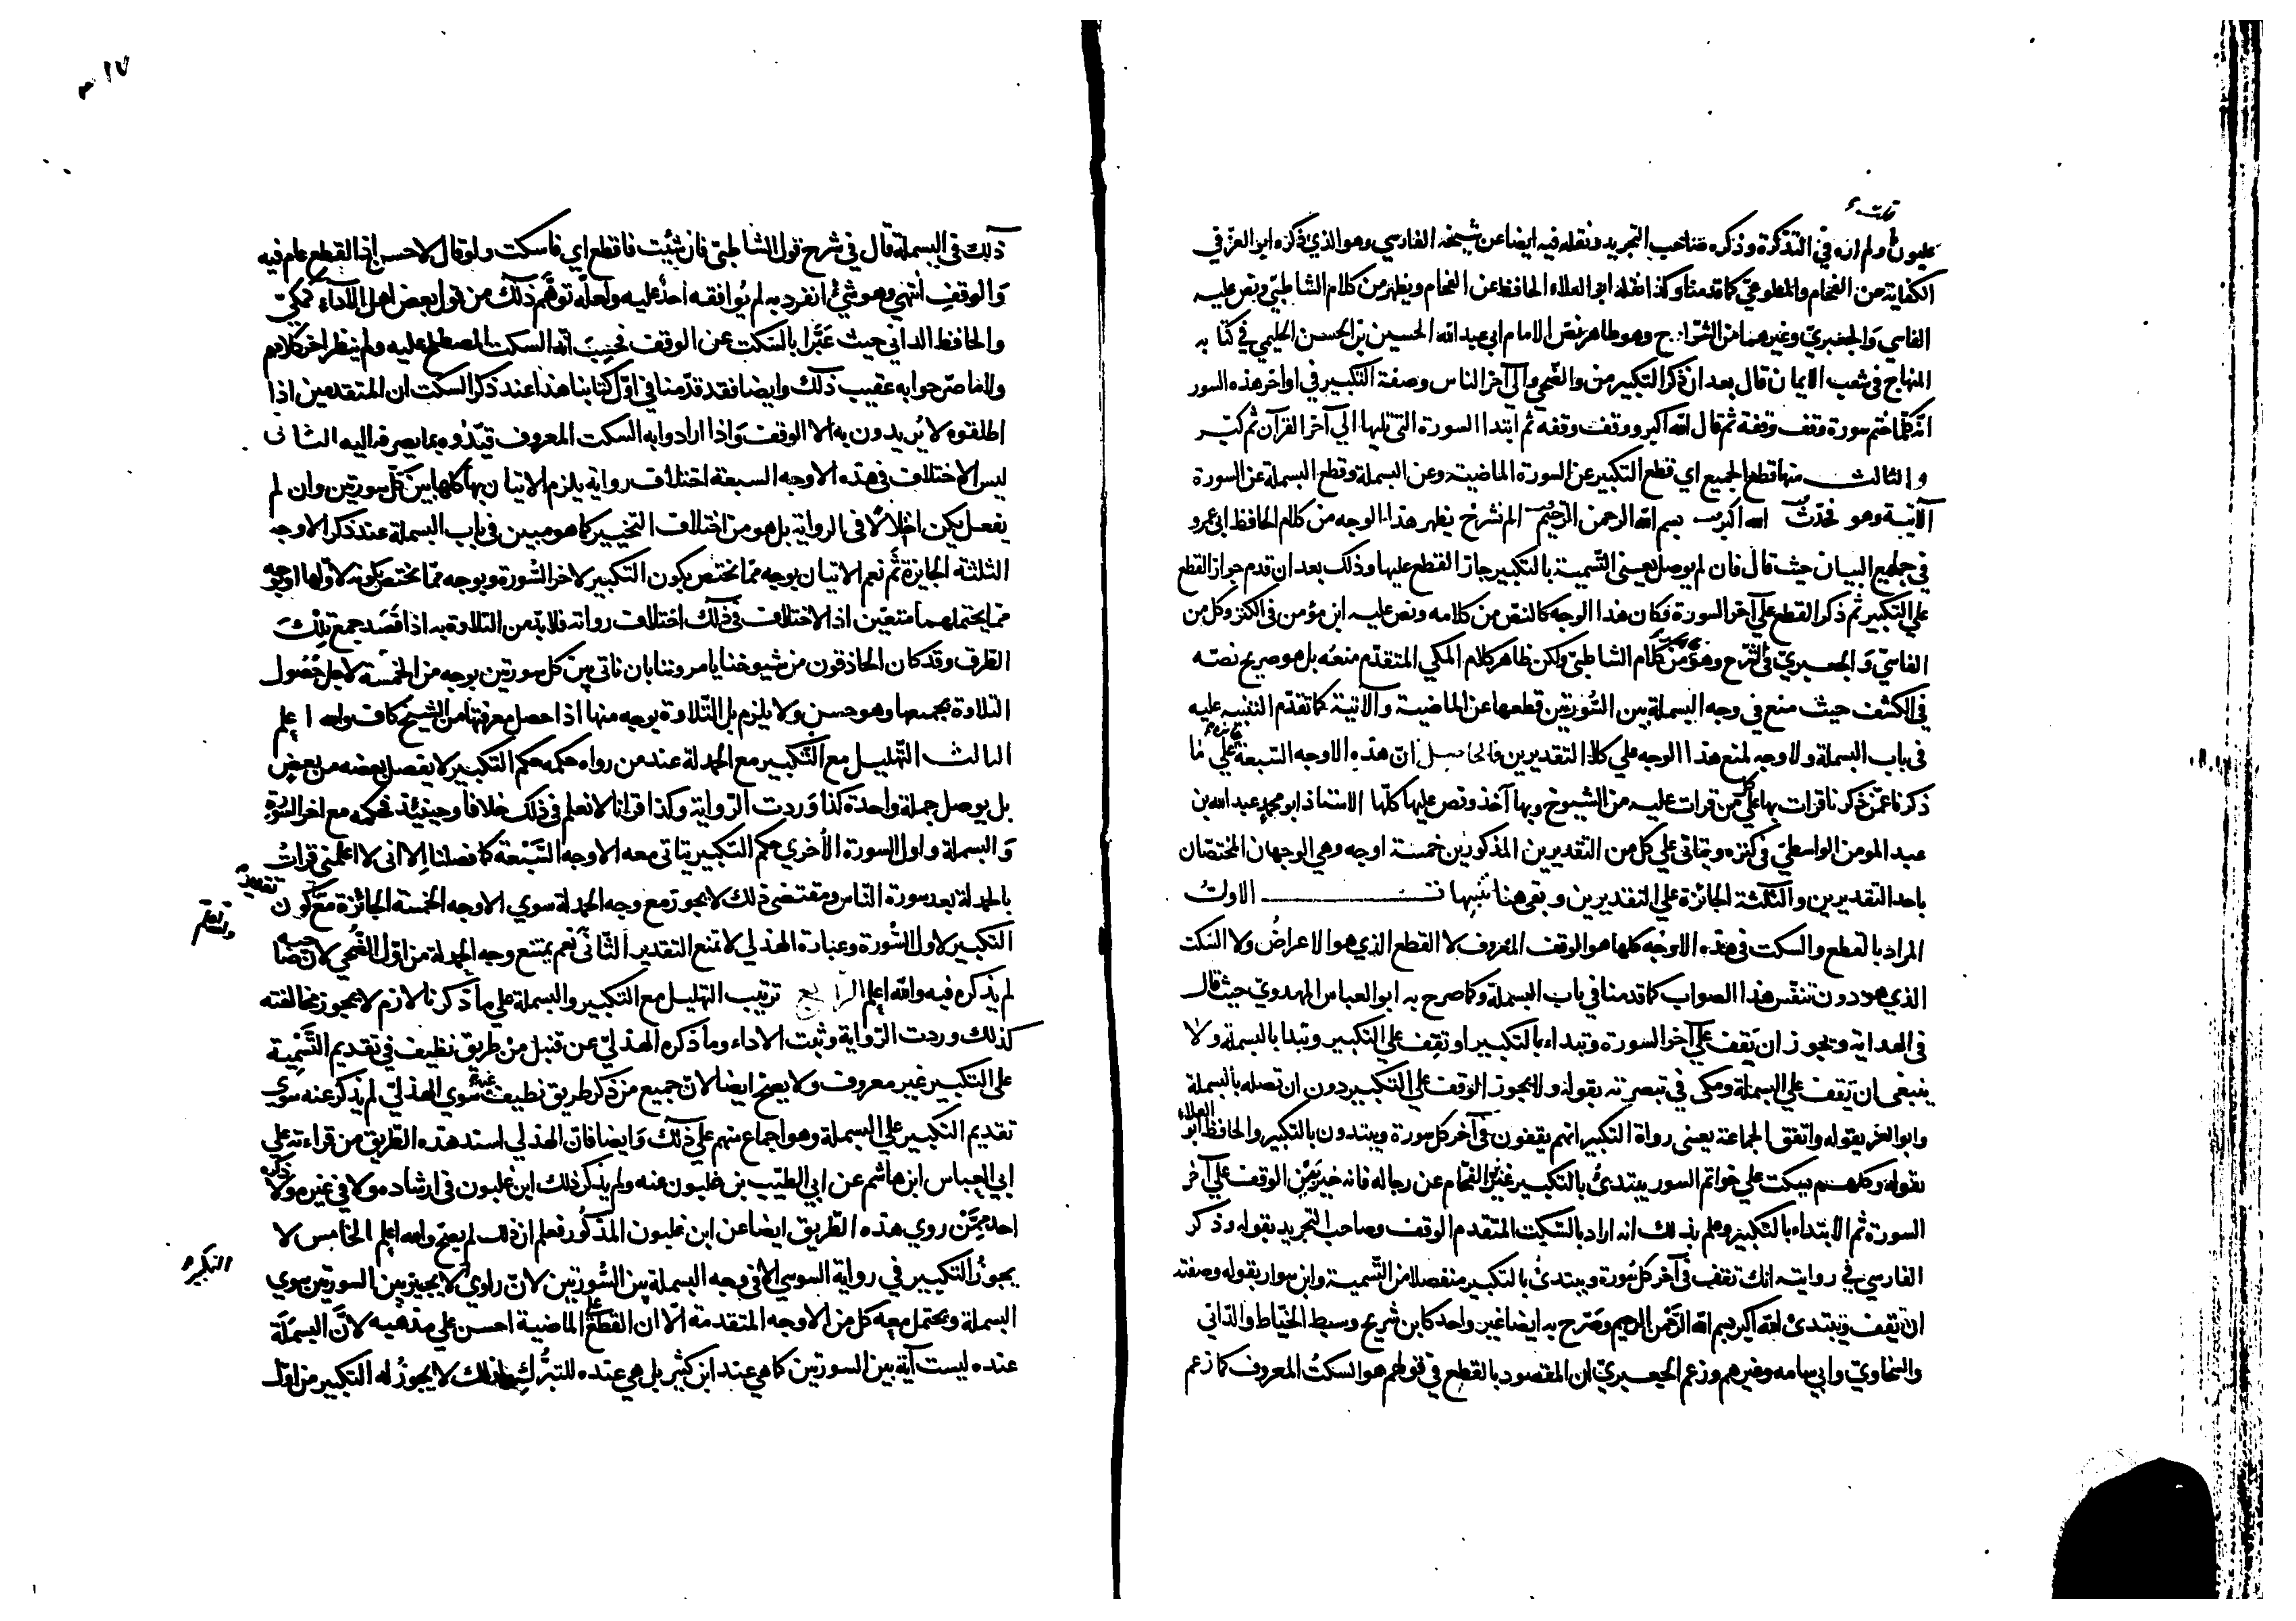 قلت
غلبون ولم اره في التذكرة وذكره صاحب التجريد ونقله فيه ايضا عن شيخه الفارسي وهو الذي ذكره ابو العز في
الكفاية عن الفحام والمطوعي كما قدمنا وكذا نقله ابو العلاء الحافظ عن الفحام ويظهر من كلام الشاطبي ونص عليه
الفاسي والجعبري وغيرهما من الشراح وهو ظاهر نص الامام ابي عبد الله الحسين بن الحسن الحليمي في كتابه
المنهاج في شعب الايمان قال بعد ان ذكر التكبير من والضحى الى آخر الناس وصفة التكبير في اواخر هذه السور
انه كلما ختم سورة وقف وقفة ثم قال الله اكبر ووقف وقفة ثم ابتدا السورة التي تليها الى آخر القرآن ثم كبر
والثالث منها قطع الجميع اي قطع التكبير عن السورة الماضية وعن البسملة وقطع البسملة عن السورة
الآتية وهو فحدث الله اكبر بسم الله الرحمن الرحيم الم نشرح يظهر هذا الوجه من كلام الحافظ ابي عمرو
في جامع البيان حيث قال فان لم يوصل يعني التسمية بالتكبير جاز القطع عليها وذلك بعد ان قدم جواز القطع
على التكبير ثم ذكر القطع على آخر السورة فكان هذا الوجه كالنص من كلامه ونص عليه ابن مؤمن في الكنز وكل من
الفاسي والجعبري في الشرح وهو من كلام الشاطبي ولكن ظاهر كلام المكي المتقدم منعه بل هو صريح نصه
في الكشف حيث منع في وجه البسملة بين السورتين قطعها عن الماضية والآتية كما تقدم التنبيه عليه
في باب البسملة ولا وجه لمنع هذا الوجه على كلا التقديرين فالحاصل ان هذه الاوجه السبعة على ما
ذكرنا عمن ذكرنا قرات بها على كل من قرات عليه من الشيوخ وبها آخذ ونص عليها كلها الاستاذ ابو محمد عبد الله بن
عبد المومن الواسطي في كنزه ويتاتى على كل من التقديرين المذكورين خمسة اوجه وهي الوجهان المختصان
باحد التقديرين والثلثة الجائزة على التقديرين وبقي هنا تنبيهات الاول
المراد بالقطع والسكت في هذه الاوجه كلها هو الوقف المعروف لا القطع الذي هو الاعراض ولا السكت
الذي هو دون تنفس هذا الصواب كما قدمنا في باب البسملة وكما صرح به ابو العباس المهدوي حيث قال
في الهداية ويجوز ان تقف على آخر السورة وتبداء بالتكبير او تقف على التكبير وتبدا بالبسملة ولا
ينبغي ان تقف على البسملة ومكي في تبصرته بقوله ولا يجوز الوقف على التكبير دون ان تصله بالبسملة
وابو العز بقوله واتفق الجماعة يعني رواة التكبير انهم يقفون في آخر كل سورة ويبتدون بالتكبير والحافظ ابو العلاء
بقوله وكلهم يسكت على خواتم السور يبتدئ بالتكبير غير الفحام عن رجاله فانه خير بين الوقف على آخر
السورة ثم الابتداء بالتكبير وعلم بذلك انه اراد بالسكت المتقدم الوقف وصاحب التجريد بقوله وذكر
الفارسي في روايته انك تقف في آخر كل سورة وتبتدئ بالتكبير منفصلا من التسمية وابن سوار بقوله وصفته
ان تقف وتبتدئ الله اكبر بسم الله الرحمن الرحيم وصرح به ايضا غير واحد كابن شريح وسبط الخياط والداني
والسخاوي وابي شامه وغيرهم وزعم الجعبري ان المقصود بالقطع في قولهم هو السكت المعروف كما زعم
١٧
ذلك في البسملة قال في شرح قول الشاطبي فان شئت فاقطع اي فاسكت ولو قال لاحسن اذ القطع عام فيه
والوقف انتهى وهو شئ انفرد به لم يوافقه احد عليه ولعله توهم ذلك من قول بعض اهل الاداء كمكي
والحافظ الداني حيث عبرا بالسكت عن الوقف فحسب انه السكت المصطلح عليه ولم ينظر آخر كلامهم
ولا ما صرحوا به عقيب ذلك وايضا فقد قدمنا في اول كتابنا هذا عند ذكر السكت ان المتقدمين اذا
اطلقوه لا يريدون به الا الوقف واذا ارادوا به السكت المعروف قيدوه بما يصرفه اليه الثاني
ليس الاختلاف في هذه الاوجه السبعة اختلاف رواية يلزم الاتيان بها كلها بين كل سورتين وان لم
يفعل يكن اخلالا في الرواية بل هو من اختلاف التخيير كما هو مبين في باب البسملة عند ذكر الاوجه
الثلثة الجايزة ثم نعم الاتيان بوجه مما يختص بكون التكبير لاخر السورة وبوجه مما يختص بكونه لاولها او بوجه
مما يحتملهما متعين اذ الاختلاف في ذلك اختلاف رواية فلابد من التلاوة به اذا قصد جمع تلك
الطرق وقد كان الحاذقون من شيوخنا يامروننا بان ناتي بين كل سورتين بوجه من الخمسة لاجل حصول
التلاوة بجميعها وهو حسن ولا يلزم بل التلاوة بوجه منها اذا حصل معرفتها من الشيخ كاف والله اعلم
الثالث التهليل مع التكبير مع الحمدلة عند من رواه حكمه حكم التكبير لا يفصل بعضه من بعض
بل يوصل جملة واحدة كذا وردت الرواية وكذا قرانا لا نعلم في ذلك خلافا وحينئذ فحكمه مع اخر السورة
والبسملة واول السورة الاخرى حكم التكبير يتاتى معه الاوجه السبعة كما فصلنا الا اني لا اعلمني قرات
بالحمدلة بعد سورة الناس ومقتضى ذلك لا يجوز مع وجه الحمدلة سوى الاوجه الخمسة الجائزة مع كون تقدير
والله اعلم
التكبير لاول السورة وعبارة الهذلي لا تمنع التقدير الثاني نعم يمتنع وجه الحمدلة من اول الضحى لان صاحبه
لم يذكره فيه والله اعلم الرابع ترتيب التهليل مع التكبير والبسملة على ما ذكرنا لازم لا يجوز مخالفته
كذلك وردت الرواية وثبت الاداء وما ذكره الهذلي عن قنبل من طريق نظيف في تقديم التسمية
على التكبير غير معروف ولا يصح ايضا لان جميع من ذكر طريق نظيف عنه سوى الهذلي لم يذكر عنه سوى
تقديم التكبير على البسملة وهو اجماع منهم على ذلك وايضا فان الهذلي اسند هذه الطريق من قراءته على
ابي العباس ابن هاشم عن ابي الطيب بن غلبون عنه ولم يذكر ذلك ابن غلبون في ارشاده ولا في غيره ولا ذكره
احد ممن روى هذه الطريق ايضا عن ابن غلبون المذكور فعلم ان ذلك لم يصح والله اعلم الخامس لا
التكبير
يجوز التكبير في رواية السوسي الا في وجه البسملة بين السورتين لان راوي لا يجيز بين السورتين سوى
البسملة ويحتمل معه كل من الاوجه المتقدمة الا ان القطع على الماضية احسن على مذهبه لان البسملة
عنده ليست آية بين السورتين كما هي عند ابن كثير بل هي عنده للتبرك ولذلك لا يجوز له التكبير من اول